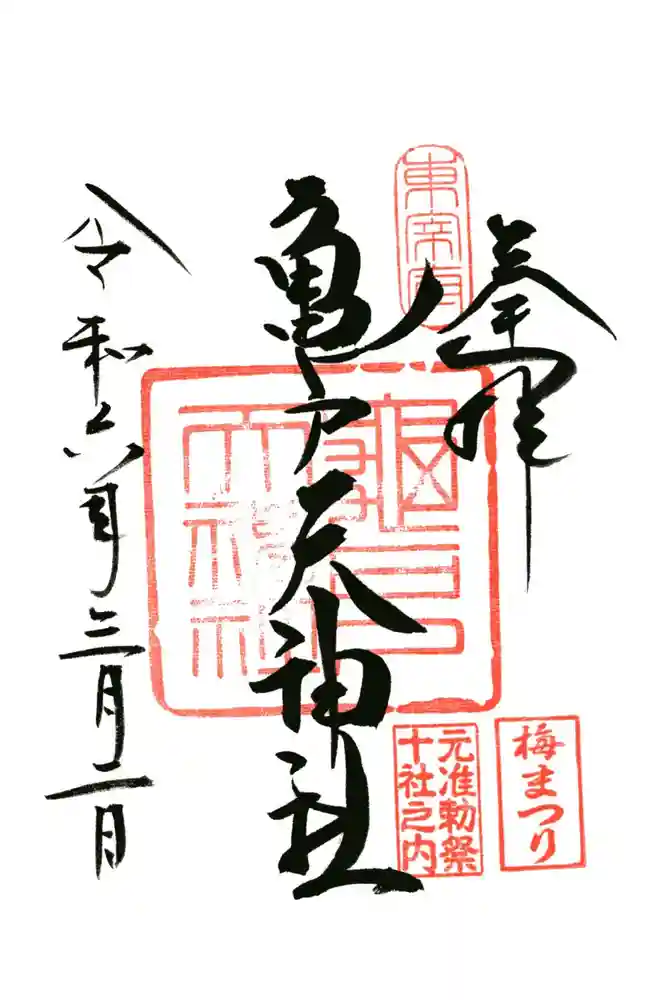 奉拝
亀戸天神社
令和六年三月二日
東宰府
元准勅祭
十社之内
梅まつり